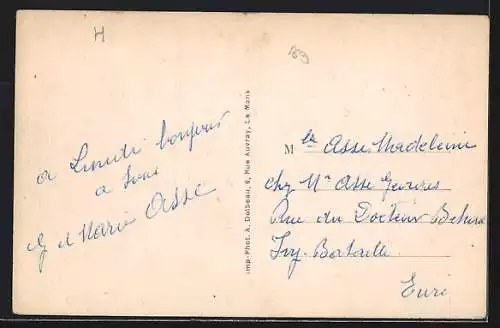 H
89
a Lundi bonjour
a tous
et Marie Asse
Imp.-Phot. A. Dolbeau, 6, Rue Auvray, Le Mans
Mlle Asse Madeleine
chez Mr Asse Georges
Rue du Docteur
Ivry Bataille
Eure